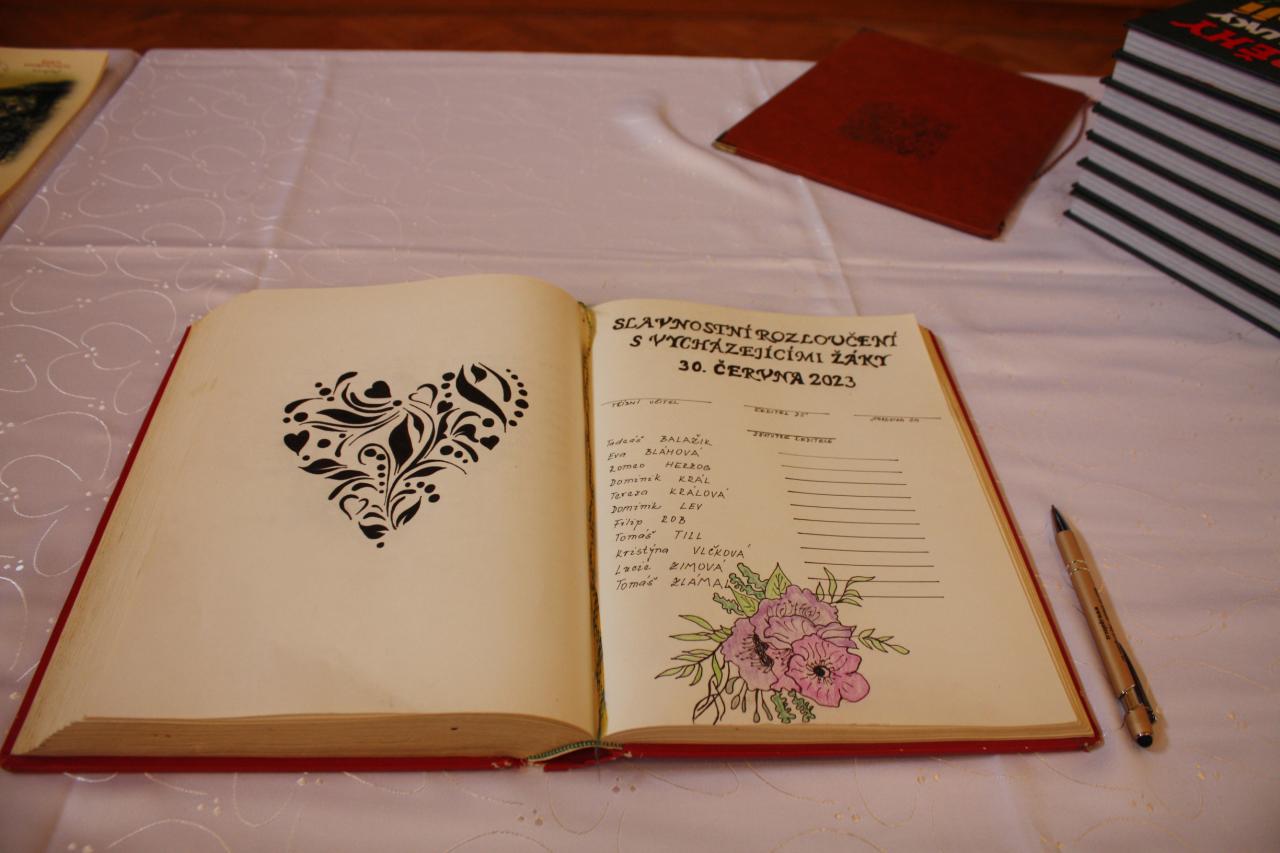 SLAVNOSTNÍ ROZLOUČENÍ
S VYCHÁZEJÍCÍMI ŽÁKY
30. ČERVNA 2023
TŘÍDNÍ UČITEL
ŘEDITEL ZŠ
ZÁSTUPCE ŘEDITELE
Tadeáš BALAŽIK
Eva BLÁHOVÁ
Romeo HERZOG
Dominik KRÁL
Tereza KRÁLOVÁ
Dominik LEV
Filip ROB
Tomáš TILL
Kristýna VLČKOVÁ
Lucie ZIMOVÁ
Tomáš ZLÁMAL